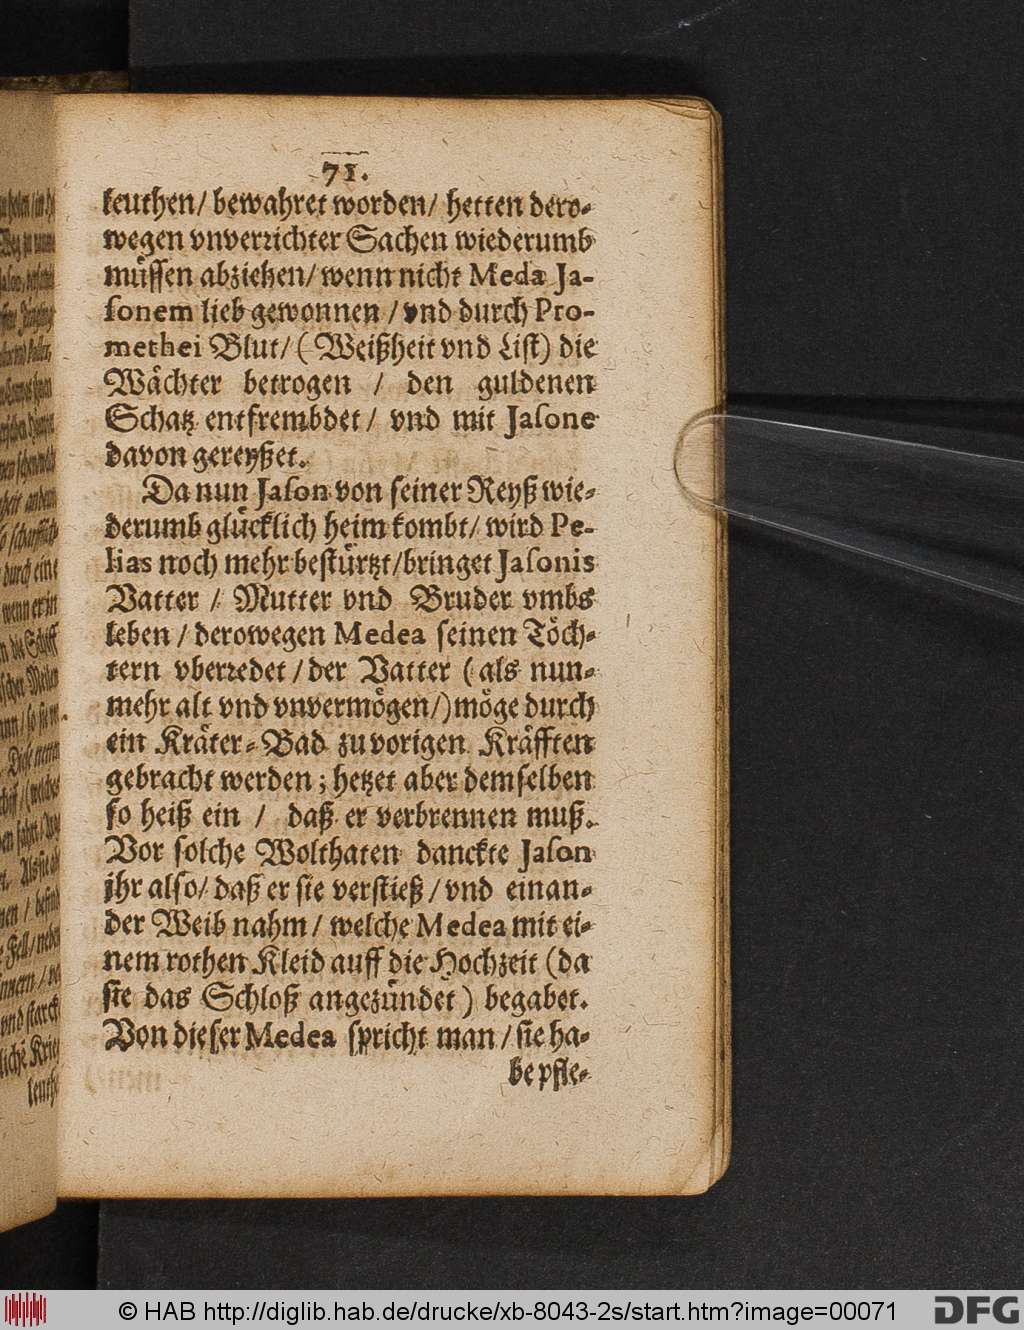 71.
leuthen/ bewahret worden/ hetten dero-
wegen vnverrichter Sachen wiederumb
müssen abziehen/ wenn nicht Meda Ja-
sonem lieb gewonnen / vnd durch Pro-
methei Blut/ ( Weißheit vnd List) die
Wächter betrogen / den guldenen
Schatz entfrembdet / vnd mit Jasone
davon gereyßet.
Da nun Jason von seiner Reyß wie-
derumb glücklich heim kombt/ wird Pe-
lias noch mehr bestürtzt/bringet Jasonis
Vatter / Mutter vnd Bruder vmbs
leben / derowegen Medea seinen Töch-
tern vberredet / der Vatter ( als nun-
mehr alt vnd vnvermögen/) möge durch
ein Kräter-Bad zu vorigen Kräfften
gebracht werden; hetzet aber demselben
so heiß ein / daß er verbrennen muß.
Vor solche Wolthaten danckte Jason
jhr also/ daß er sie verstieß / vnd ein an-
der Weib nahm / welche Medea mit ei-
nem rothen Kleid auff die Hochzeit (da
sie das Schloß angezündet ) begabet.
Von dieser Medea spricht man / sie ha-
be pfle-
© HAB http://diglib.hab.de/drucke/xb-8043-2s/start.htm?image=00071
DFG